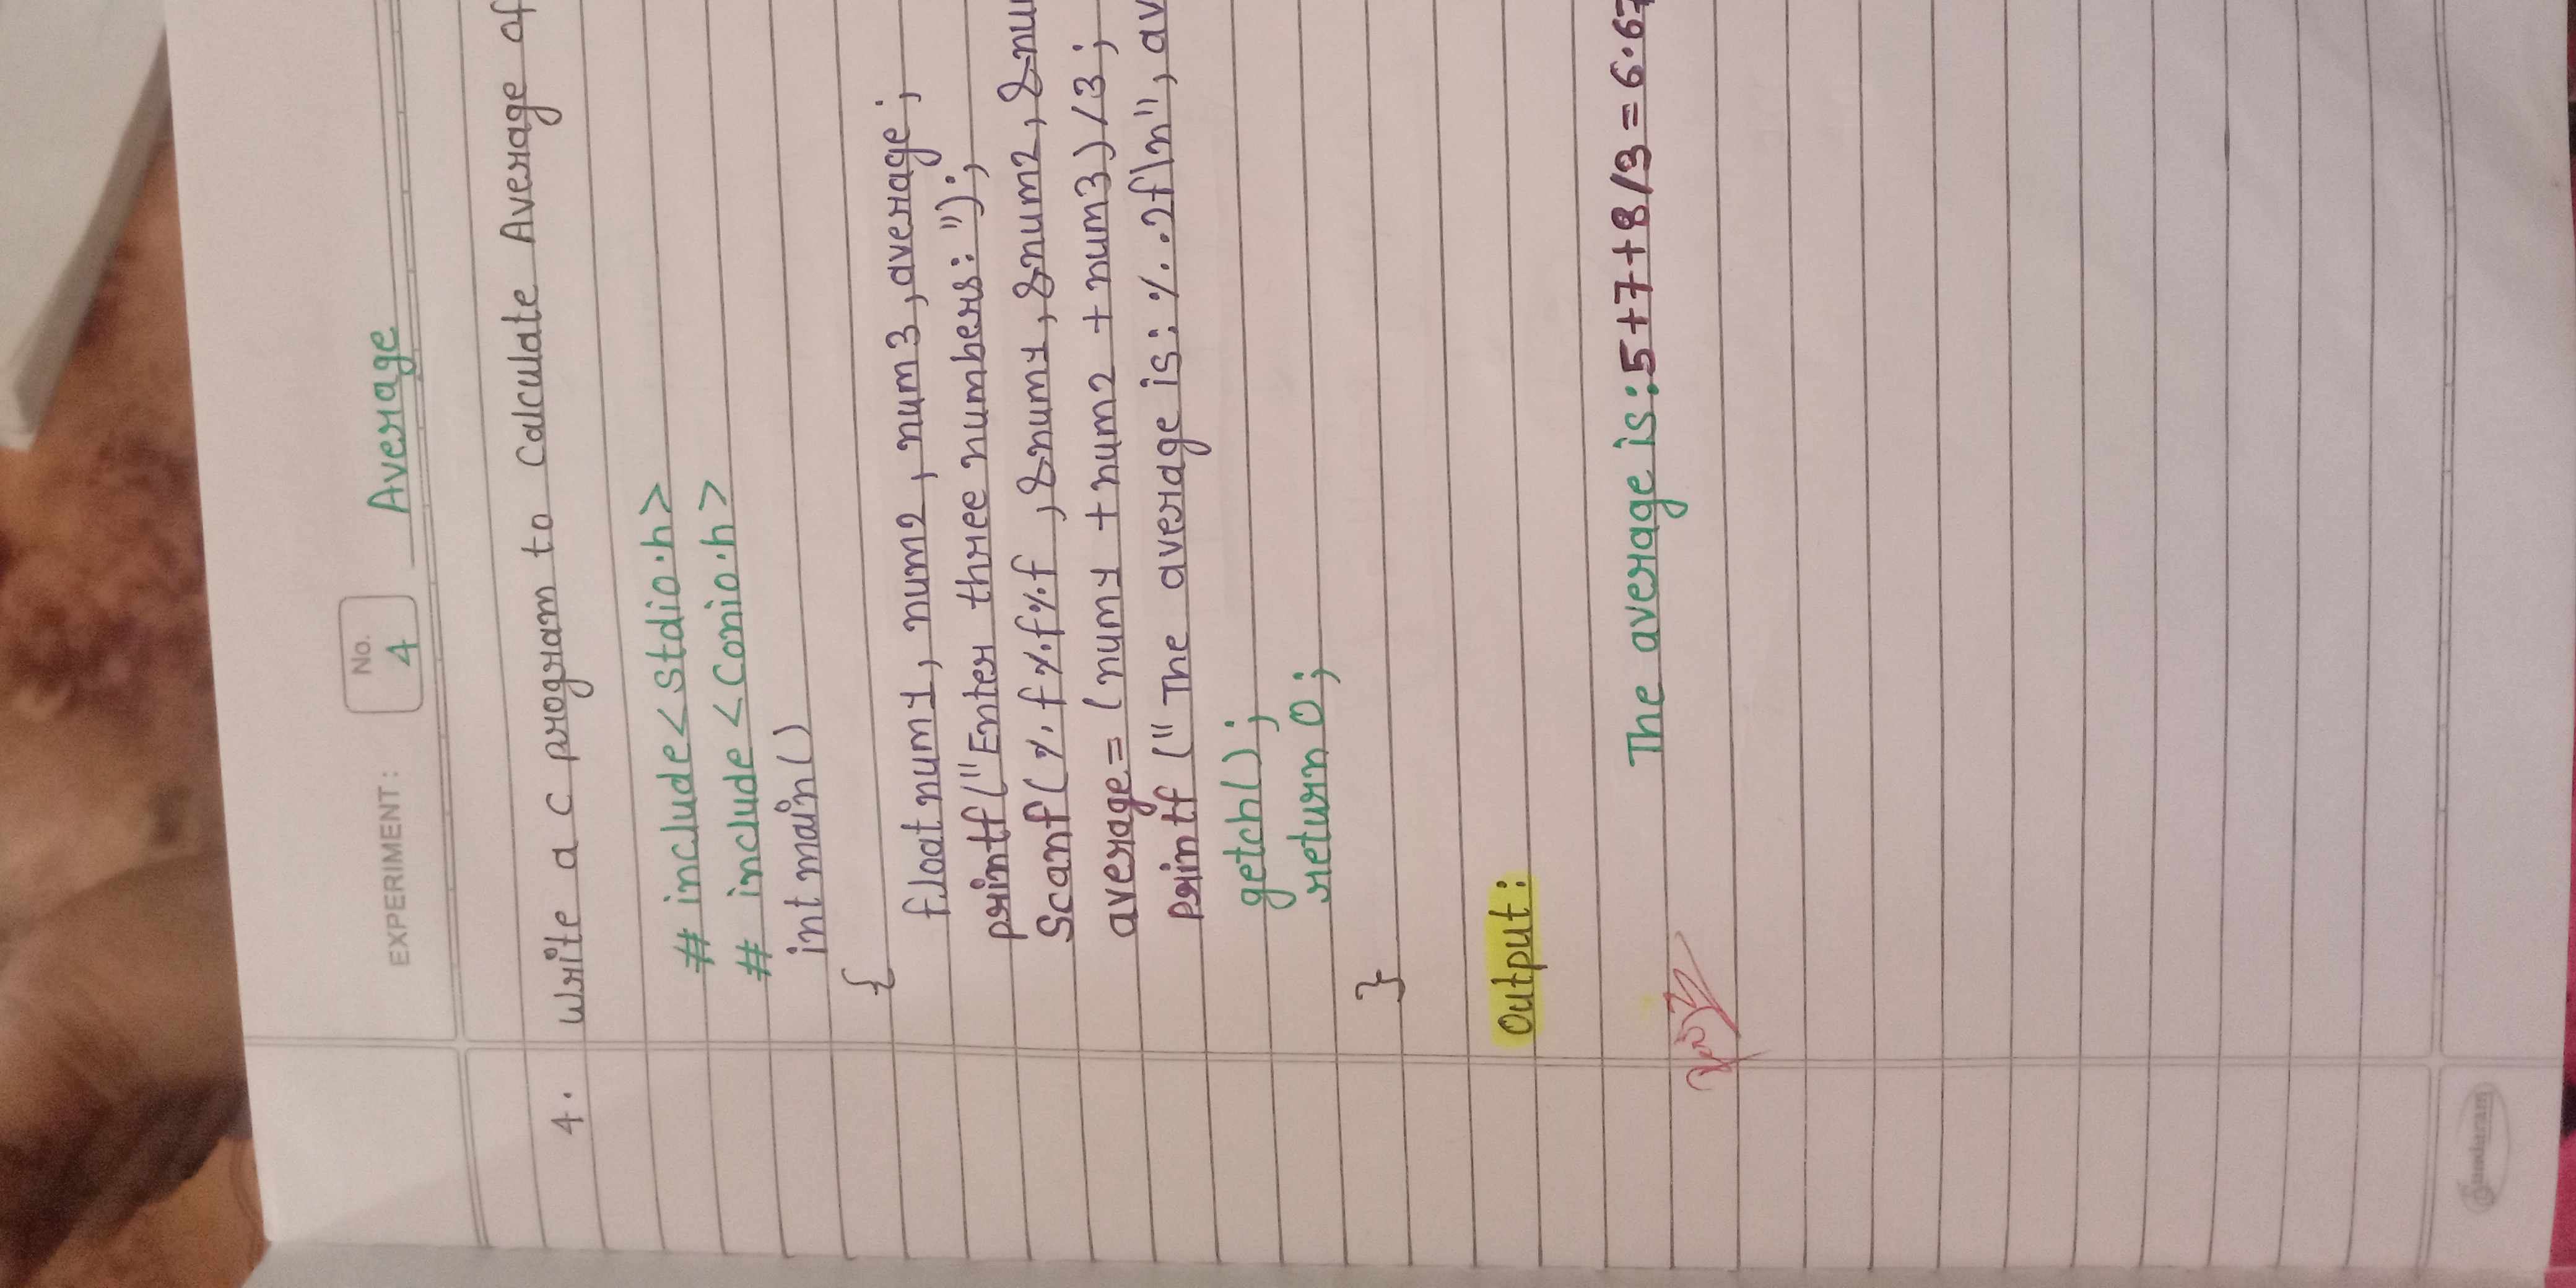 EXPERIMENT: No. 4 Average
4. Write a c program to Calculate Average of
# include<stdio.h>
# include <Conio.h>
int main()
{
float num1, num2, num3, average;
printf("Enter three numbers:");
Scanf(%f%f%f, &num1, &num2, &nu
average=(num1 + num2 + num3)/3;
printf("The average is: %.2f\n", av
getch();
return 0;
}
Output:
The average is: 5+7+8/3=6.67
Sundaram